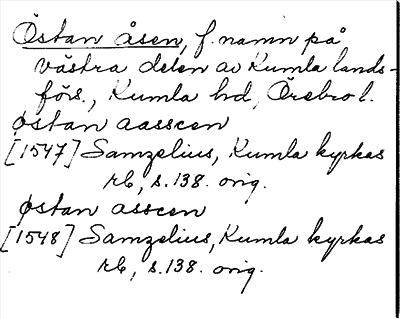 Östan åsen, f. namn på
västra delen av Kumla lands-
förs., Kumla hd, Örebro l.
østan aasscen
[1547] Samzelius, Kumla kyrkas
rb, s. 138. orig.
østan asscen
[1548] Samzelius, Kumla kyrkas
rb, s. 138. orig.